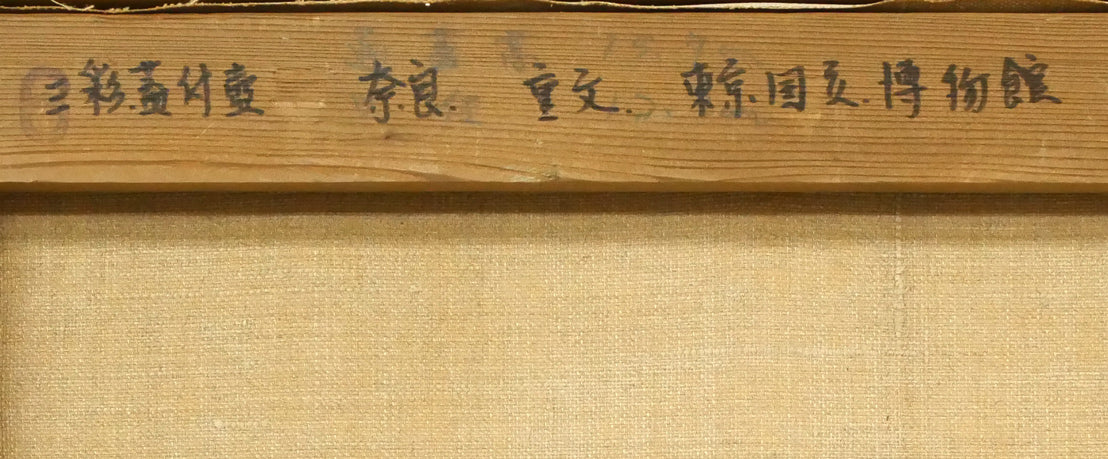 三彩蓋付壺 奈良. 重文. 東京国立博物館